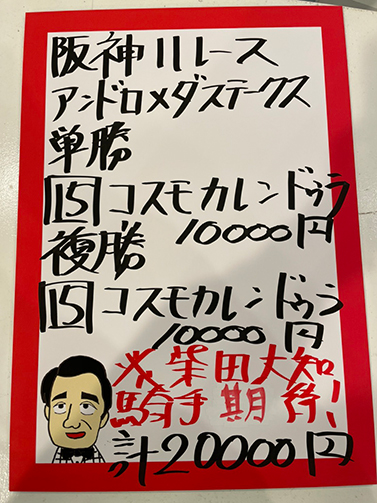 阪神11レース
アンドロメダステークス
単勝
15コスモカレンドゥラ
10000円
複勝
15コスモカレンドゥラ
10000円
※柴田大知
騎手期待!
計20000円